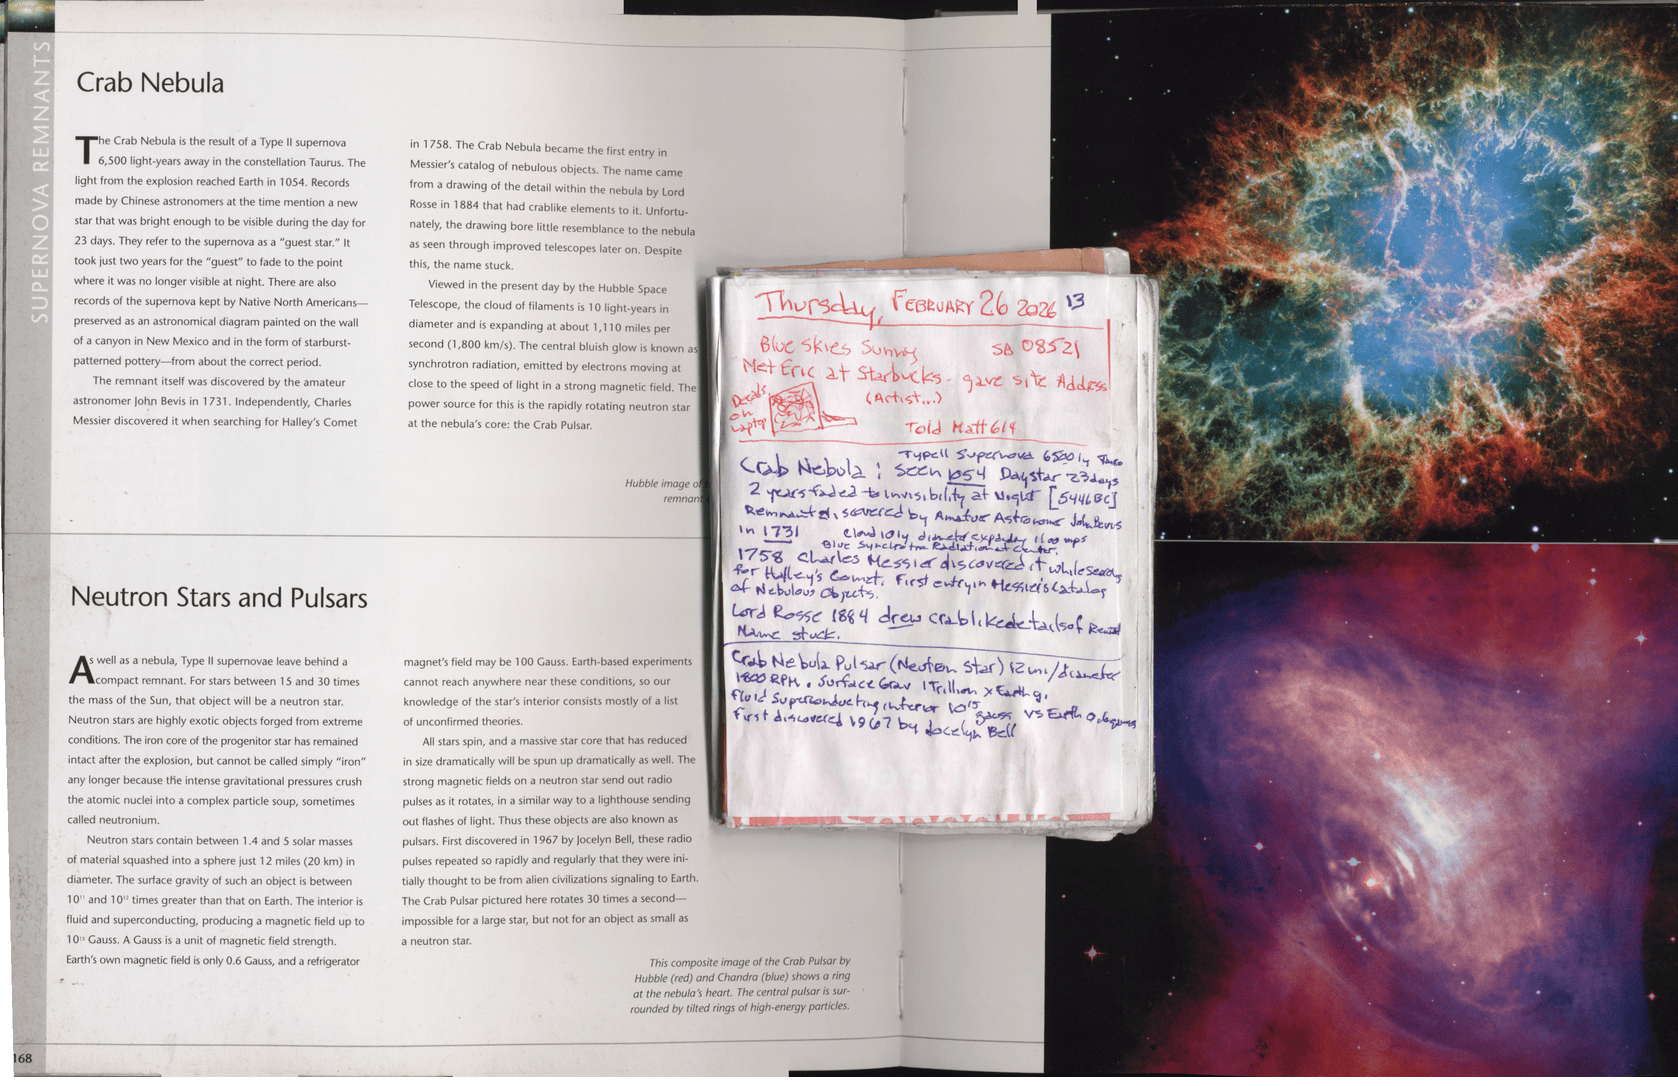 SUPERNOVA REMNANTS
Crab Nebula
The Crab Nebula is the result of a Type II supernova
6,500 light-years away in the constellation Taurus. The
light from the explosion reached Earth in 1054. Records
made by Chinese astronomers at the time mention a new
star that was bright enough to be visible during the day for
23 days. They refer to the supernova as a “guest star.” It
took just two years for the “guest” to fade to the point
where it was no longer visible at night. There are also
records of the supernova kept by Native North Americans—
preserved as an astronomical diagram painted on the wall
of a canyon in New Mexico and in the form of starburst-
patterned pottery—from about the correct period.
The remnant itself was discovered by the amateur
astronomer John Bevis in 1731. Independently, Charles
Messier discovered it when searching for Halley’s Comet
in 1758. The Crab Nebula became the first entry in
Messier’s catalog of nebulous objects. The name came
from a drawing of the detail within the nebula by Lord
Rosse in 1884 that had crablike elements to it. Unfortu-
nately, the drawing bore little resemblance to the nebula
as seen through improved telescopes later on. Despite
this, the name stuck.
Viewed in the present day by the Hubble Space
Telescope, the cloud of filaments is 10 light-years in
diameter and is expanding at about 1,110 miles per
second (1,800 km/s). The central bluish glow is known as
synchrotron radiation, emitted by electrons moving at
close to the speed of light in a strong magnetic field. The
power source for this is the rapidly rotating neutron star
at the nebula’s core: the Crab Pulsar.
Hubble image of
remnant
Neutron Stars and Pulsars
As well as a nebula, Type II supernovae leave behind a
compact remnant. For stars between 15 and 30 times
the mass of the Sun, that object will be a neutron star.
Neutron stars are highly exotic objects forged from extreme
conditions. The iron core of the progenitor star has remained
intact after the explosion, but cannot be called simply “iron”
any longer because the intense gravitational pressures crush
the atomic nuclei into a complex particle soup, sometimes
called neutronium.
Neutron stars contain between 1.4 and 5 solar masses
of material squashed into a sphere just 12 miles (20 km) in
diameter. The surface gravity of such an object is between
10¹¹ and 10¹² times greater than that on Earth. The interior is
fluid and superconducting, producing a magnetic field up to
10¹⁵ Gauss. A Gauss is a unit of magnetic field strength.
Earth’s own magnetic field is only 0.6 Gauss, and a refrigerator
magnet’s field may be 100 Gauss. Earth-based experiments
cannot reach anywhere near these conditions, so our
knowledge of the star’s interior consists mostly of a list
of unconfirmed theories.
All stars spin, and a massive star core that has reduced
in size dramatically will be spun up dramatically as well. The
strong magnetic fields on a neutron star send out radio
pulses as it rotates, in a similar way to a lighthouse sending
out flashes of light. Thus these objects are also known as
pulsars. First discovered in 1967 by Jocelyn Bell, these radio
pulses repeated so rapidly and regularly that they were ini-
tially thought to be from alien civilizations signaling to Earth.
The Crab Pulsar pictured here rotates 30 times a second—
impossible for a large star, but not for an object as small as
a neutron star.
This composite image of the Crab Pulsar by
Hubble (red) and Chandra (blue) shows a ring
at the nebula’s heart. The central pulsar is sur-
rounded by tilted rings of high-energy particles.
168
Thursday, February 26 2026 13
Blue Skies Sunny SB 08521
Met Eric at Starbucks. gave site Address
(Artist...)
Decals
on
Laptop
Told Matt 614
Type II Supernova 6500 ly
Crab Nebula : Seen 1054 Daystar 23 days
2 years faded to invisibility at Night [5446 BC]
Remnant discovered by Amatuer Astronomer John Bevis
in 1731 cloud 10 ly diameter expanding 1100 mps
Blue Synchrotron Radiation at Center.
1758 Charles Messier discovered it while
for Halley's Comet. First entry in Messier's Catalog
of Nebulous Objects.
Lord Rosse 1884 drew crablike details of
Name stuck.
Crab Nebula Pulsar (Neutron Star) 12 mi/diameter
1800 RPM. Surface Grav 1 Trillion x Earth g.
Fluid Superconducting interior 10¹⁵ gauss vs Earth 0.6 gauss
First discovered 1967 by Jocelyn Bell